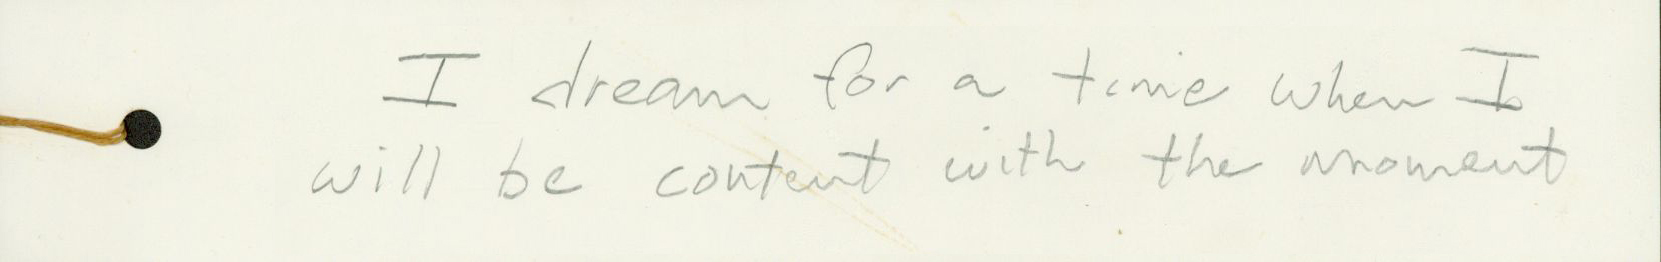 I dream for a time when I
will be content with the moment